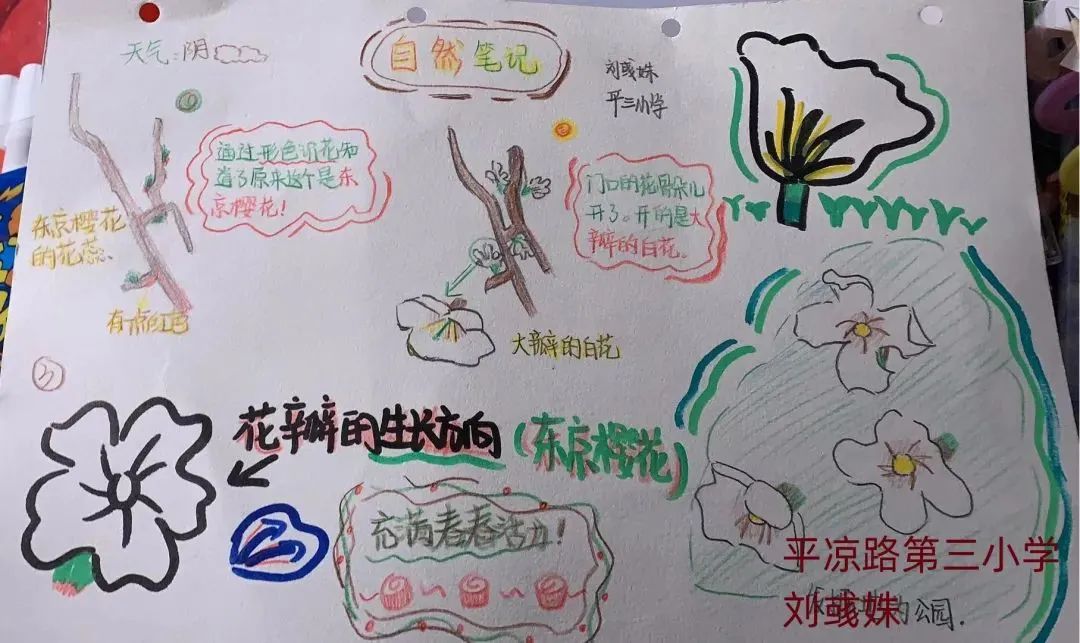 天气:阴
自然笔记
刘彧姝
平三小学
通过形色识花知
道了原来这个是东
京樱花!
门口的花骨朵儿
开了。开的是大
瓣的白花.
东京樱花
的花蕊、
有点红色
大瓣的白花
花瓣的生长方向(东京樱花)
充满春春活力!
公园.
平凉路第三小学
刘彧姝